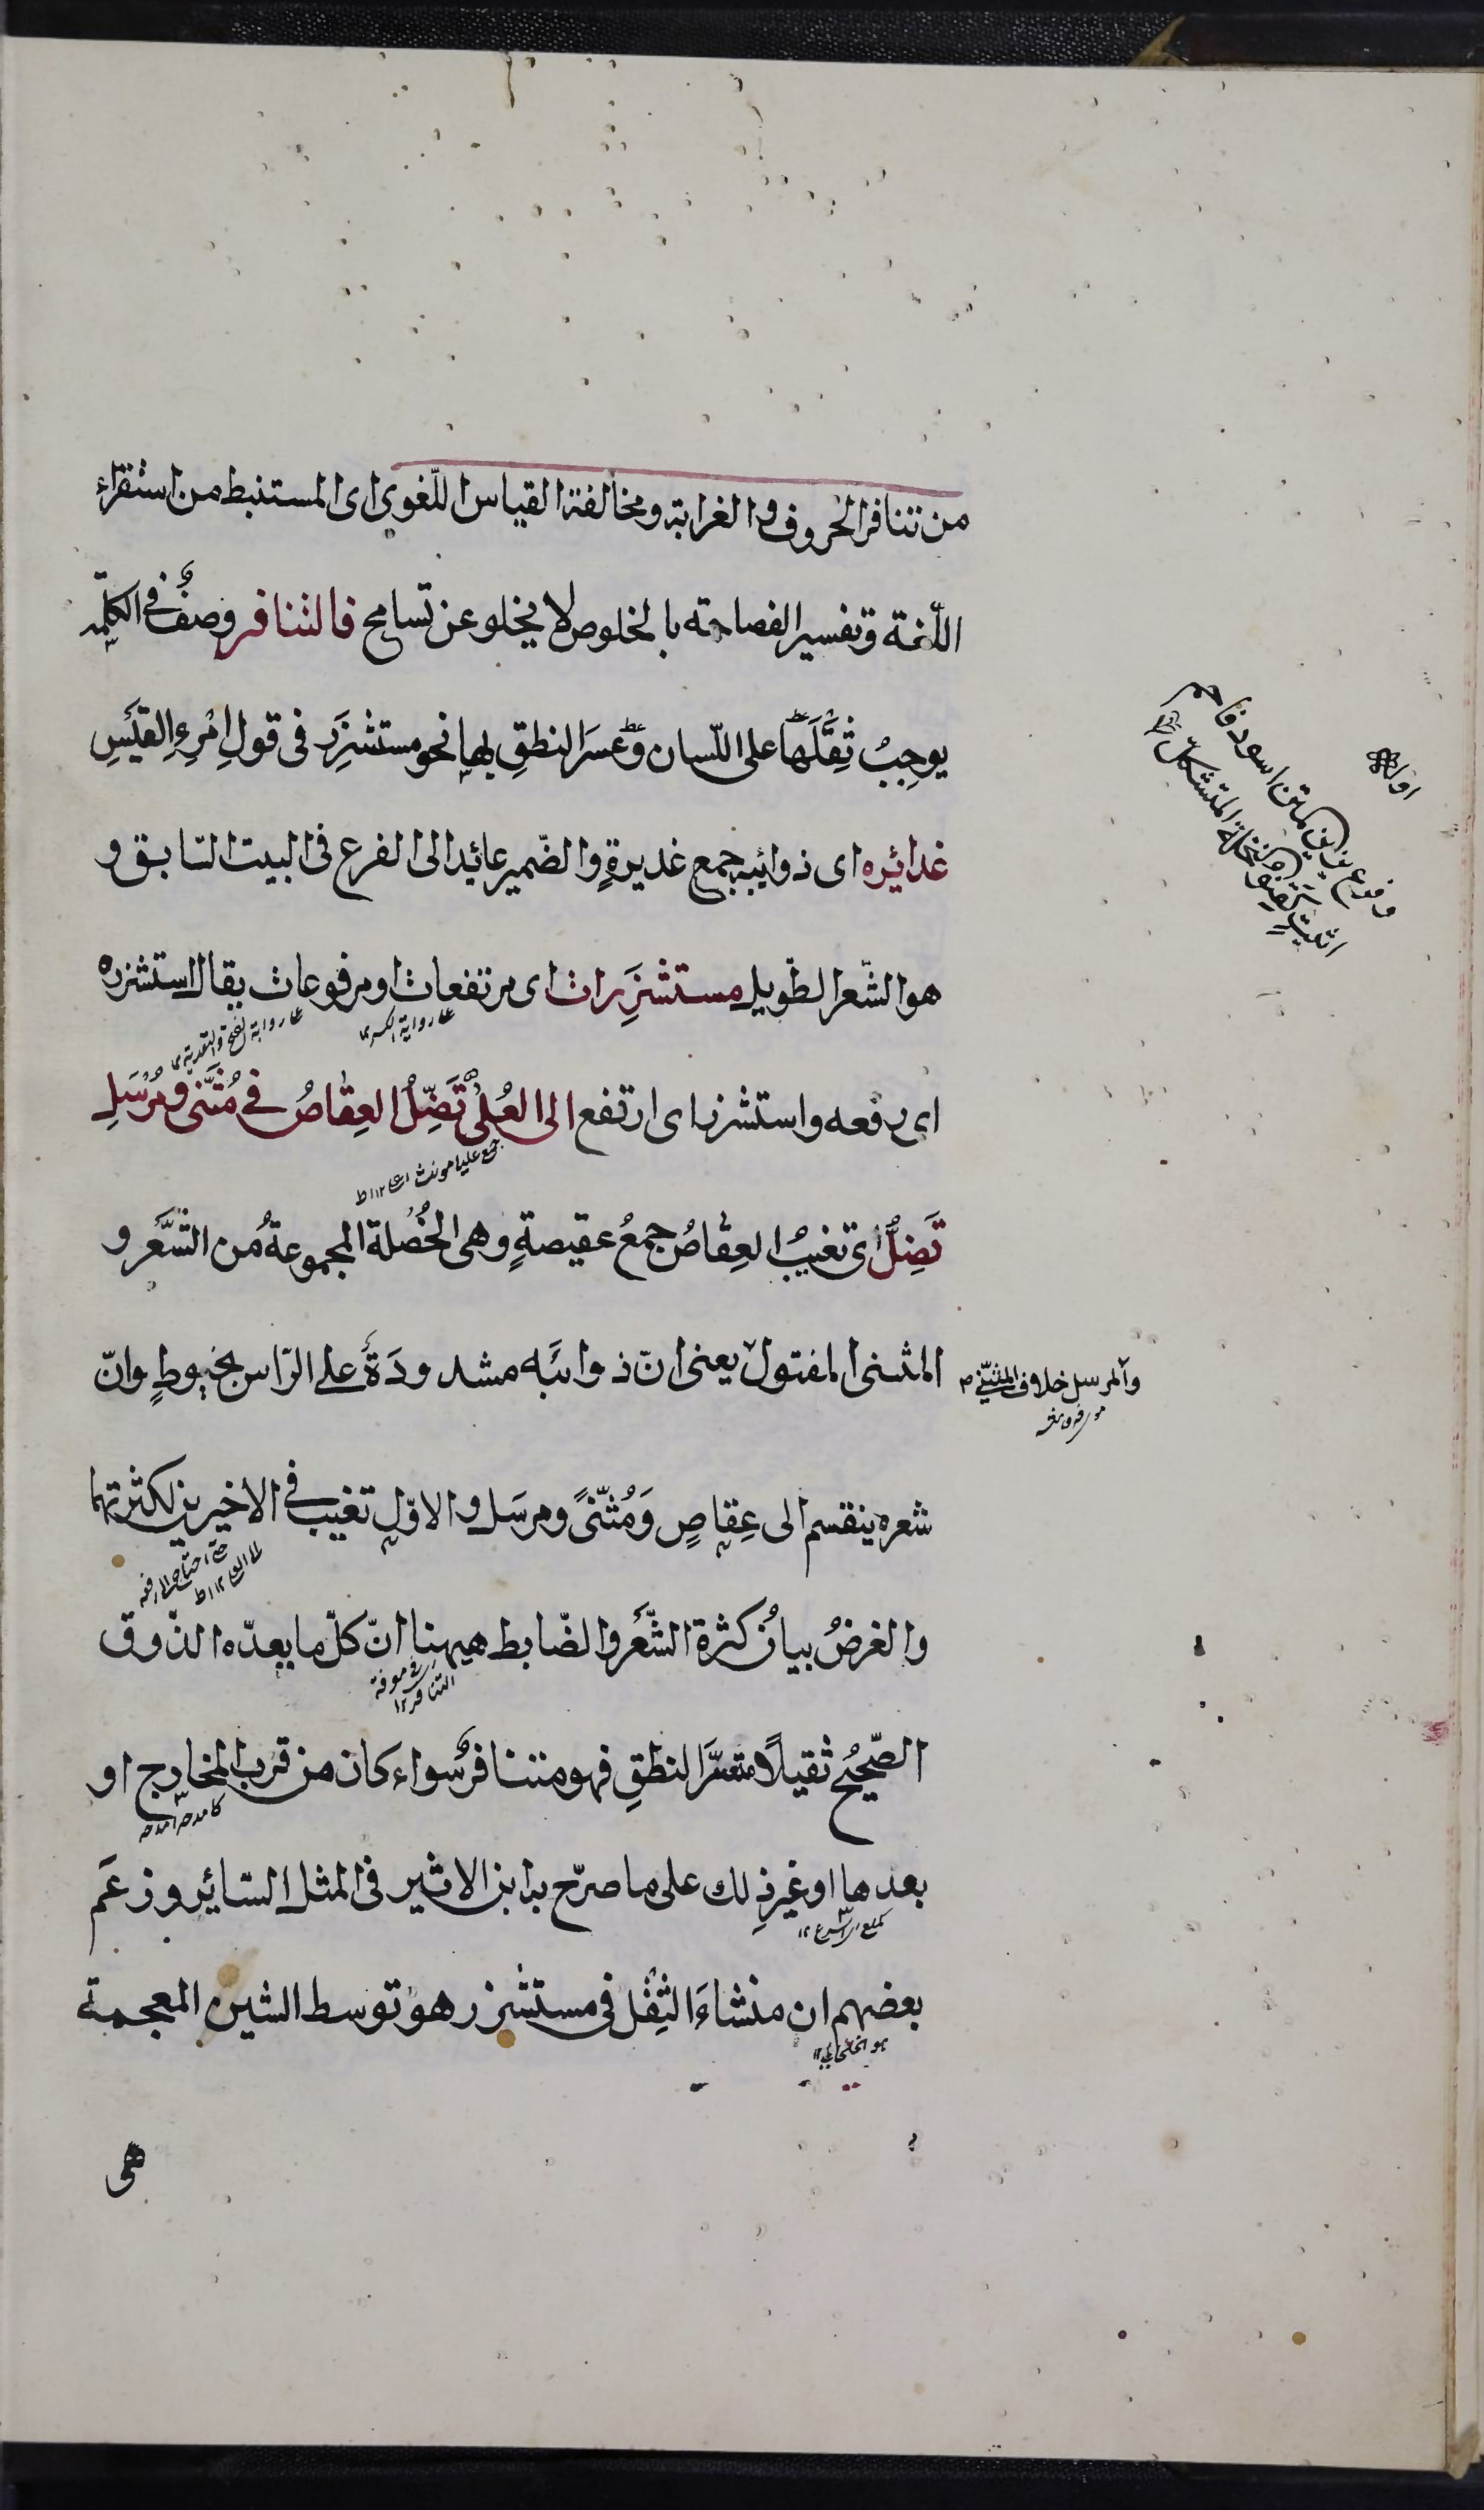 من تنافر الحروف والغرابة ومخالفة القياس اللّغوى اى المستنبط من استقراء
اللّغة وتفسير الفصاحة بالخلوص لا يخلو عن تسامح فالتنافر وصفٌ في الكلمة
يوجِبُ ثِقَلَهَا على اللّسان وَعُسرَ النطقِ بها نحو مستشزِرَ في قولِ امْرِءِ القَيْسِ
غدائره اى ذوائبه جمع غديرةٍ والضمير عائد الى الفرع في البيت السّابق و
هو الشّعر الطّويل مستشزِرات اى مرتفعات او مرفوعات يقال استشزره
على رواية الكسر
اى رفعه واستشزر اى ارتفع الى العُلٰى تَضِلُّ العِقاصُ في مُثَنّى ومُرْسَلِ
جمع عليا مونث
تَضِلُّ اى تغيبُ العِقاصُ جمعُ عقيصةٍ وهى الخُصْلة المجموعةُ من الشَّعر و
المثنى المفتول يعنى انّ ذوائبَه مشدودَةٌ على الرّاس بخيوطٍ وانّ
والمرسل خلاف المثنّى
شعره ينقسم الى عِقاصٍ وَمُثنّىً ومرسَل والاوّل تغيب في الاخيرين لكثرتهما
والغرضُ بيانُ كثرة الشَّعر والضّابط هيهنا انّ كلّ ما يعدّه الذّوق
في معرفة التنافر ١٢
الصّحيحُ ثقيلًا متعسَّرَ النطقِ فهو متنافرٌ سواء كان من قرب المخارج او
بعدها او غيرِ ذلك على ما صرّح به ابن الاثير في المثل السّائر وزعَم
بعضهم ان منشاءَ الثِقْل في مستشزر هو توسط الشين المعجمة
هو الخلخالي ١٢
هى